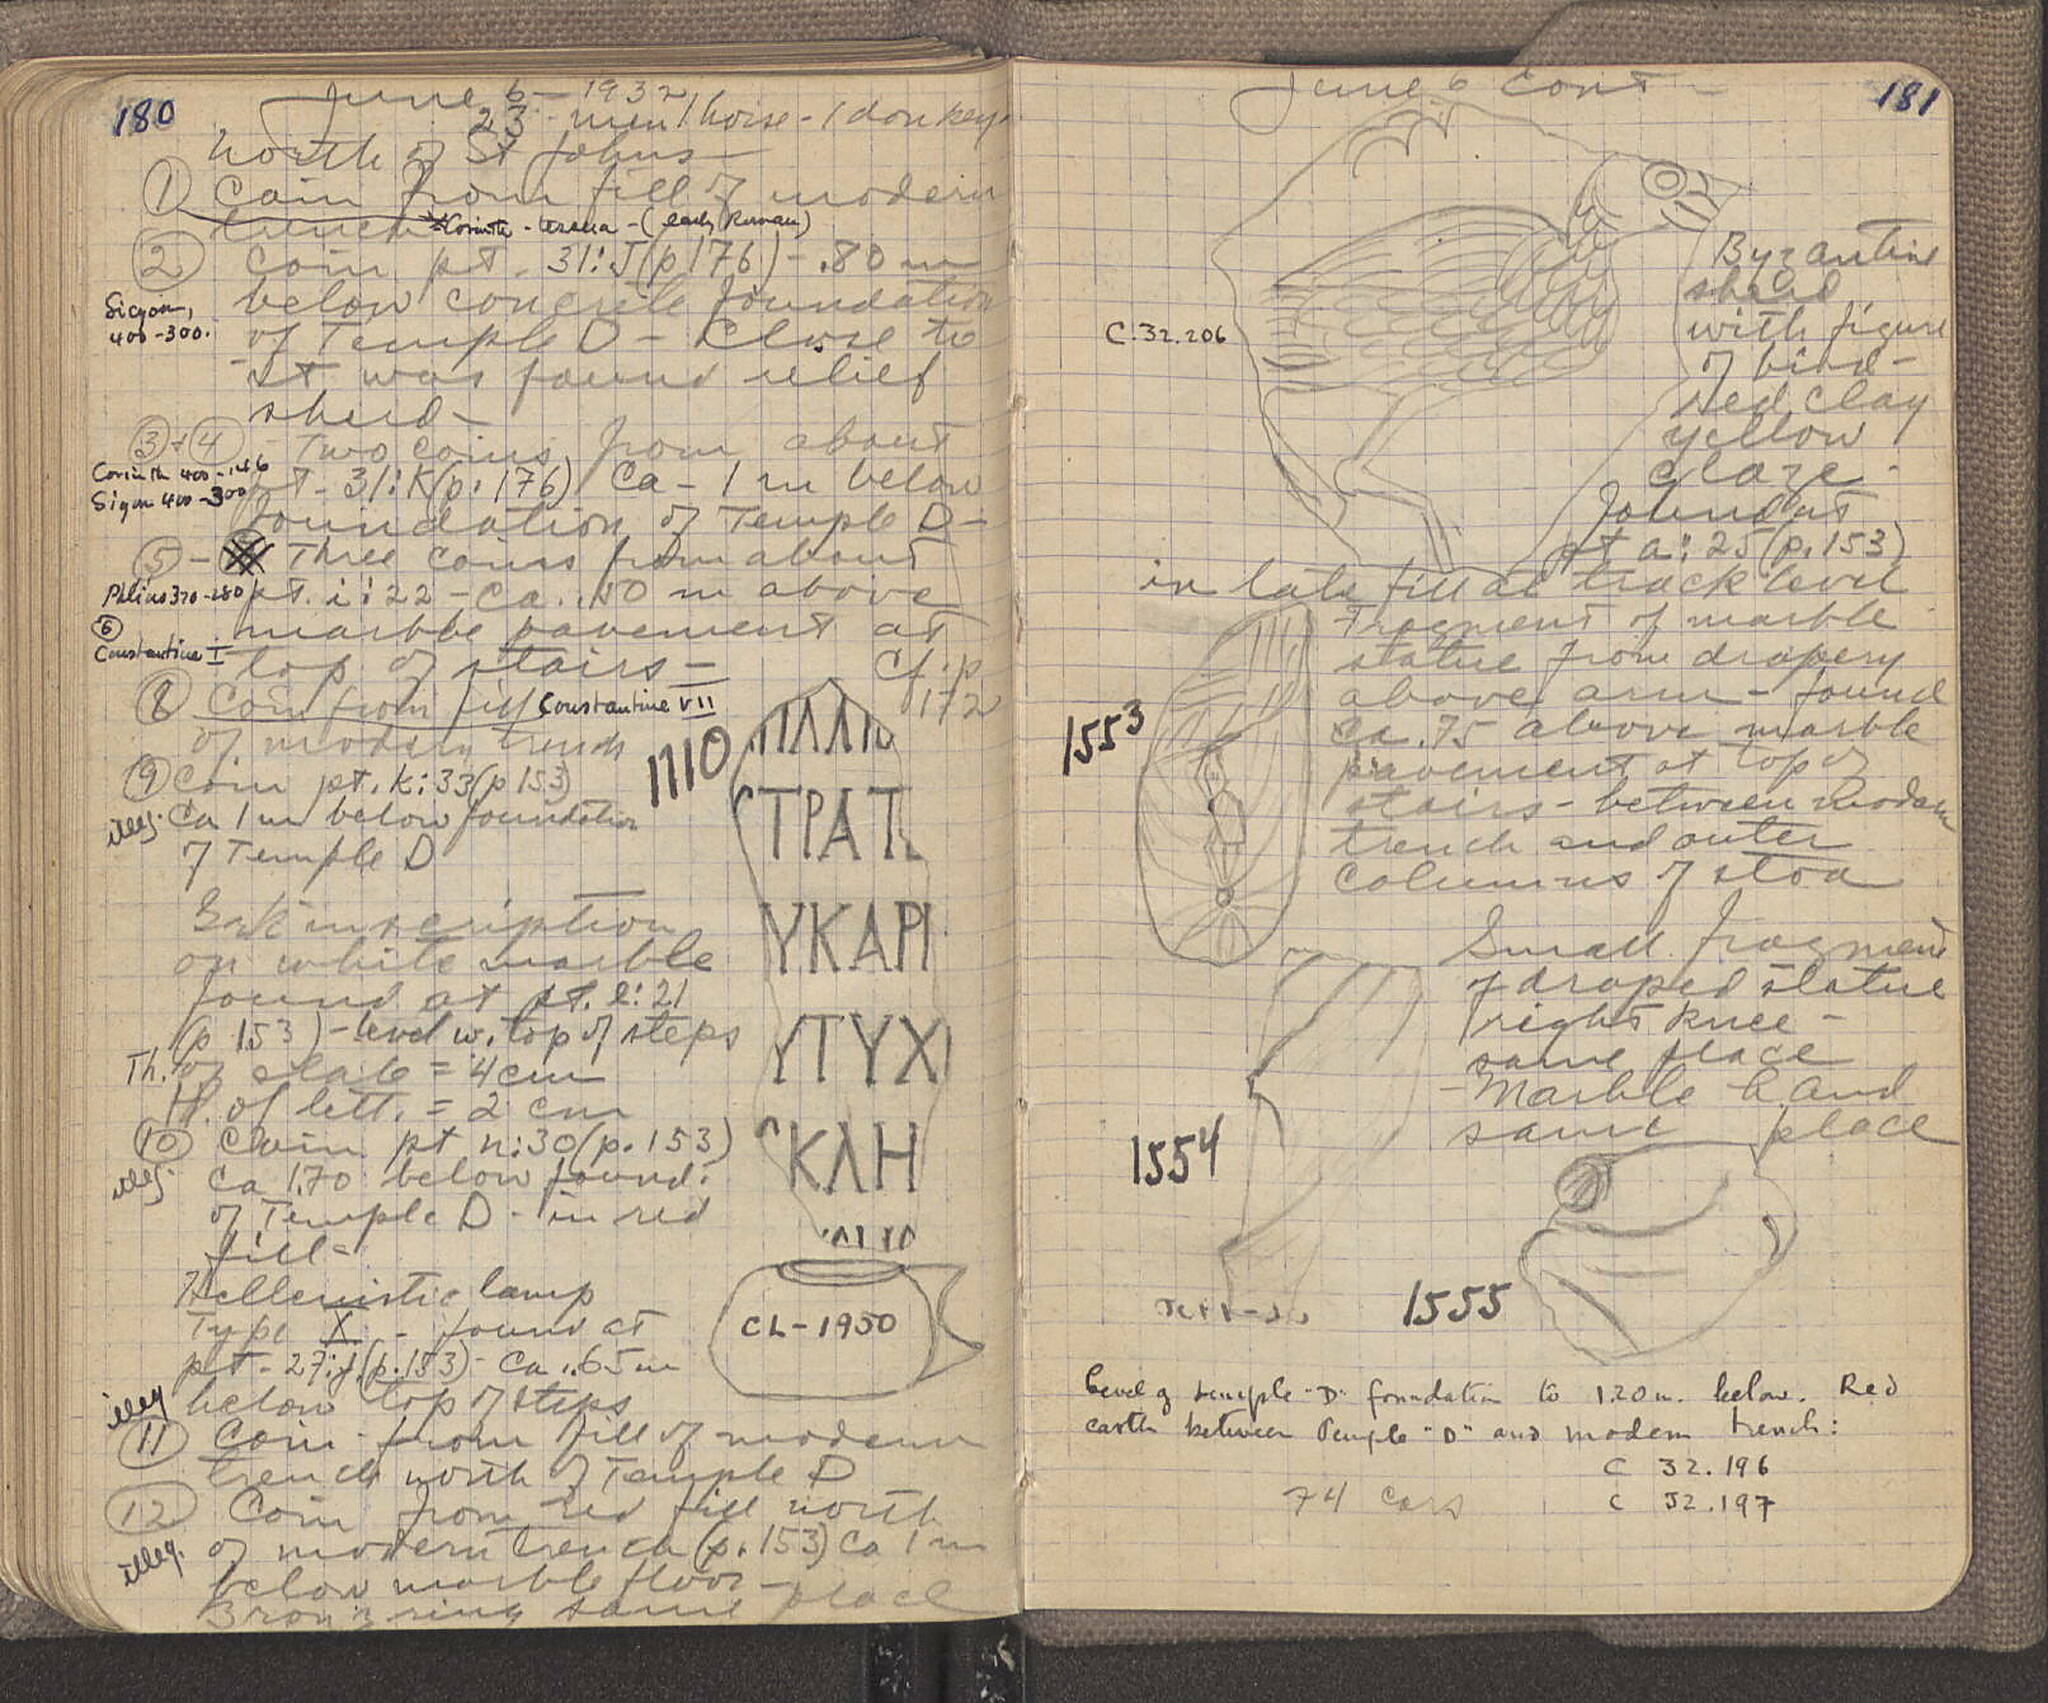 180
June 6 - 1932
23 men 1 horse - 1 donkey
North of St Johns -
1 Coin from fill of modern
trench Corinth - (early Roman)
2 Coin pt. 31:J (p 176) - .80 m
below concrete foundation
Sicyon,
400-300.
of Temple D - Close to
it was found relief
sherd -
3 + 4 - Two coins from about
Corinth 400-146
Sicyon 400-300
pt. 31:K (p. 176) Ca - 1 m below
foundation of Temple D -
5 - Three coins from about
Phlius 370-280
pt. i:22 - Ca. .10 m above
6
Constantine I
marble pavement at
top of stairs - Cf. p
172
8 Coin from fill Constantine VII
of modern trench
9 Coin pt. k:33 (p 153)
illeg. Ca 1 m below foundation
of Temple D
1110
ΙΛΛΙ
ΣΤΡΑΤ
ΥΚΑΡΙ
ΥΤΥΧΙ
ΚΛΗ
Grk inscription
on white marble
found at pt. l:21
(p 153) - level w. top of steps
Th. of slab = 4 cm
H. of lett. = 2 cm
10 Coin pt n:30 (p. 153)
illeg. Ca 1.70 below found.
of Temple D - in red
fill -
Hellenistic lamp
Type X - found at
pt - 27:j (p. 153) - Ca .65 m
below top of steps
CL-1950
illeg
11 Coin - from fill of modern
trench north of Temple D
12 Coin from red fill north
illeg. of modern trench (p. 153) Ca 1 m
below marble floor -
Bronz ring same place
181
June 6 Cont -
C. 32. 206
Byzantine
sherd
with figure
of bird -
red clay
yellow
glaze -
found at
pt a:25 (p. 153)
in late fill at track level
1553
Fragment of marble
statue from drapery
above arm - found
Ca .75 above marble
pavement at top of
stairs - between modern
trench and outer
columns of stoa
Small fragment
of draped statue
right knee -
same place
- Marble hand
same place
1554
1555
Level of temple "D" foundation to 1.20 m. below. Red
earth between Temple "D" and modern trench:
C 32. 196
C 32. 197
74 cars